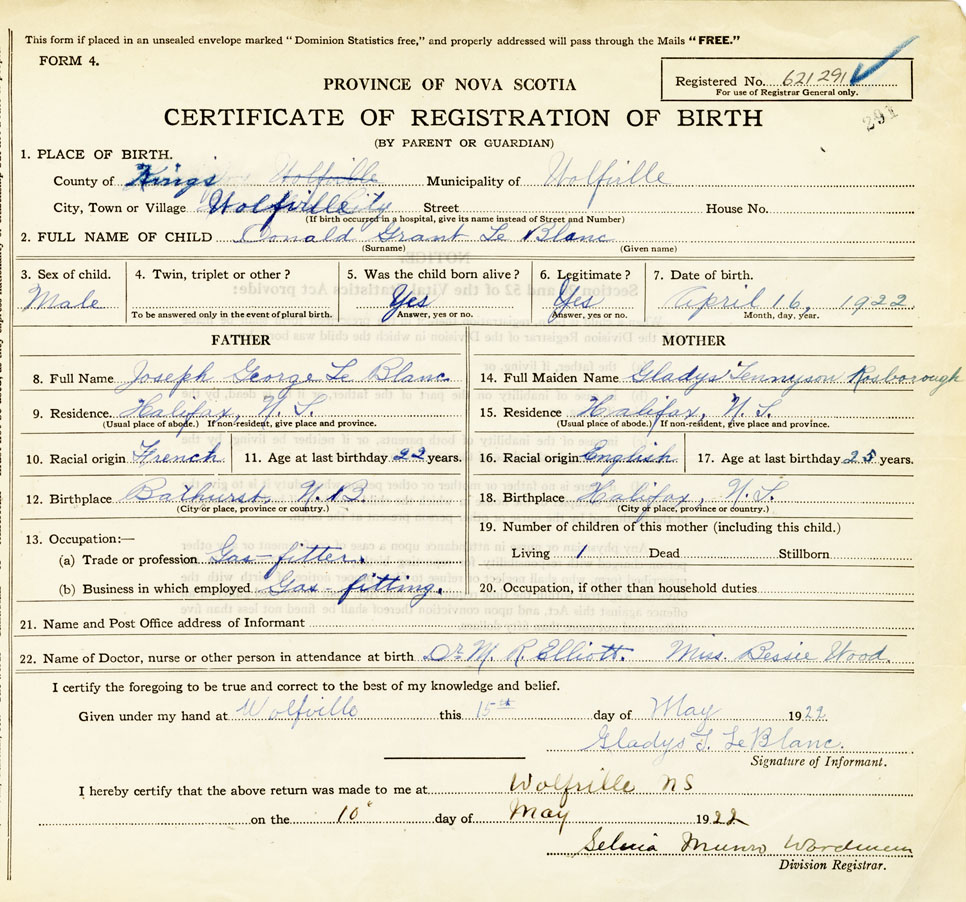 This form if placed in an unsealed envelope marked "Dominion Statistics free," and properly addressed will pass through the Mails "FREE."
FORM 4.
Registered No. 621291
For use of Registrar General only.
291
PROVINCE OF NOVA SCOTIA
CERTIFICATE OF REGISTRATION OF BIRTH
(BY PARENT OR GUARDIAN)
1. PLACE OF BIRTH.
County of Kings Wolfville Municipality of Wolfville
City, Town or Village Wolfville City Street House No.
(If birth occurred in a hospital, give its name instead of Street and Number)
2. FULL NAME OF CHILD Donald Grant Le Blanc
(Surname) (Given name)
3. Sex of child. 4. Twin, triplet or other? 5. Was the child born alive? 6. Legitimate? 7. Date of birth.
Male Yes Yes April 16, 1922
To be answered only in the event of plural birth. Answer, yes or no. Answer, yes or no. Month, day, year.
FATHER MOTHER
8. Full Name Joseph George Le Blanc 14. Full Maiden Name Gladys Tennyson Rosborough
9. Residence. Halifax, N.S. 15. Residence Halifax, N.S.
(Usual place of abode.) If non-resident, give place and province. (Usual place of abode.) If non-resident, give place and province.
10. Racial origin French 11. Age at last birthday 22 years. 16. Racial origin English 17. Age at last birthday 25 years.
12. Birthplace Bathurst N.B. 18. Birthplace Halifax, N.S.
(City or place, province or country.) (City or place, province or country.)
13. Occupation:— 19. Number of children of this mother (including this child.)
(a) Trade or profession Gas-fitter. Living 1 Dead Stillborn
(b) Business in which employed Gas-fitting. 20. Occupation, if other than household duties
21. Name and Post Office address of Informant
22. Name of Doctor, nurse or other person in attendance at birth Dr. M. R. Elliott. Miss. Bessie Wood.
I certify the foregoing to be true and correct to the best of my knowledge and belief.
Given under my hand at Wolfville this 15th day of May 1922
Gladys T. Le Blanc.
Signature of Informant.
I hereby certify that the above return was made to me at Wolfville NS
on the 10 day of May 1922
Munro
Division Registrar.